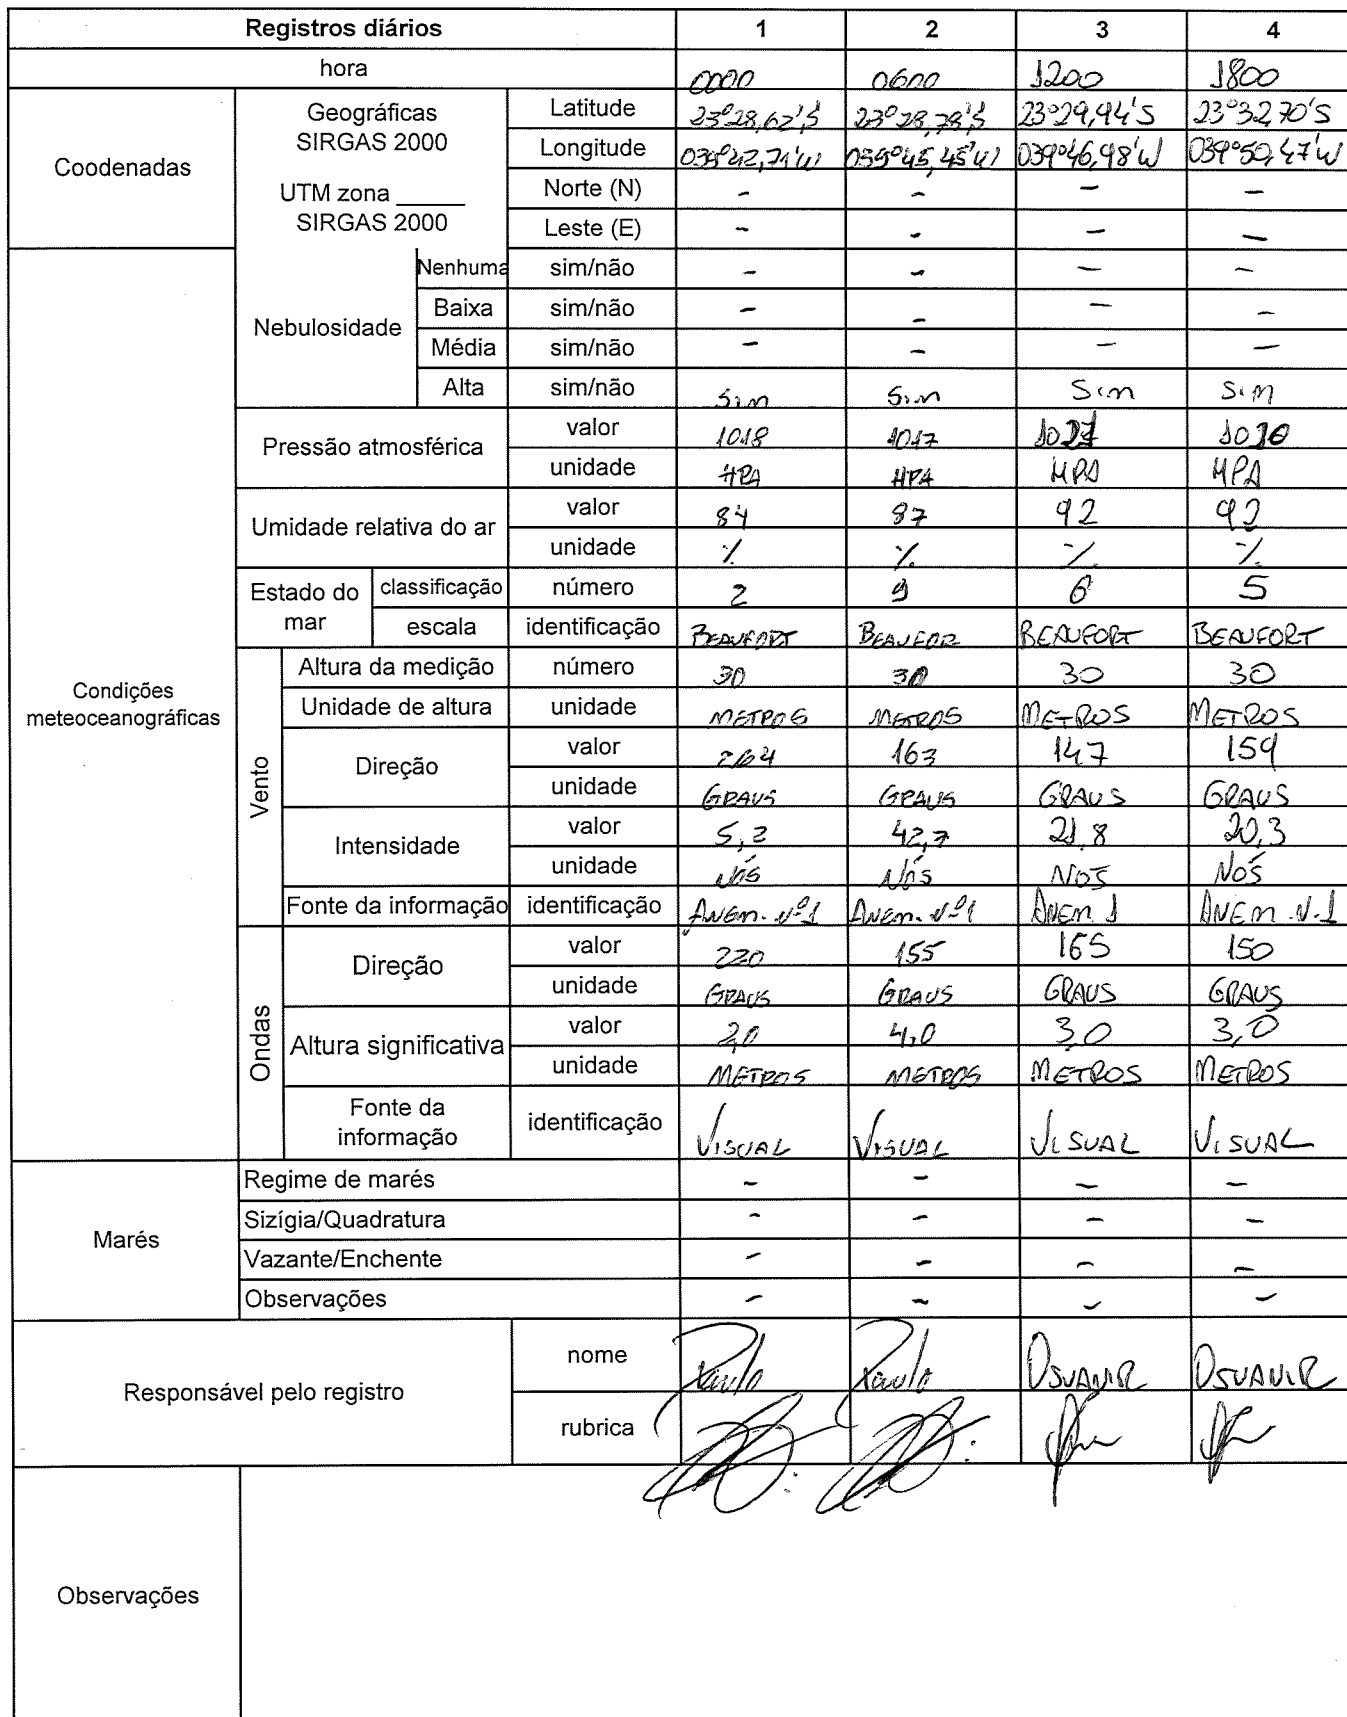 Registros diários 1 2 3 4
hora 0000 0600 1200 1800
Coodenadas
Geográficas
SIRGAS 2000
UTM zona _____
SIRGAS 2000
Latitude 23º28,62'S 23º28,78'S 23º29,94'S 23º32,70'S
Longitude 039º42,71'W 039º45,45'W 039º46,98'W 039º50,47'W
Norte (N) - - - -
Leste (E) - - - -
Condições
meteoceanográficas
Nebulosidade
Nenhuma sim/não - - - -
Baixa sim/não - - - -
Média sim/não - - - -
Alta sim/não Sim Sim Sim Sim
Pressão atmosférica
valor 1018 1017
unidade HPA HPA HPA HPA
Umidade relativa do ar
valor 84 87 92 92
unidade % % % %
Estado do
mar
classificação número 2 9 6 5
escala identificação BEAUFORT BEAUFOR BEAUFORT BEAUFORT
Vento
Altura da medição número 30 30 30 30
Unidade de altura unidade METROS METROS METROS METROS
Direção
valor 264 163 147 159
unidade GRAUS GRAUS GRAUS GRAUS
Intensidade
valor 5,2 42,7 21,8 20,3
unidade NÓS NÓS NÓS NÓS
Fonte da informação identificação ANEM. Nº1 ANEM. Nº1 ANEM 1 ANEM .N.1
Ondas
Direção
valor 220 155 165 150
unidade GRAUS GRAUS GRAUS GRAUS
Altura significativa
valor 2,0 4,0 3,0 3,0
unidade METROS METROS METROS METROS
Fonte da
informação
identificação VISUAL VISUAL VISUAL VISUAL
Marés
Regime de marés - - - -
Sizígia/Quadratura - - - -
Vazante/Enchente - - - -
Observações - - - -
Responsável pelo registro
nome Paulo Paulo OSVANIR OSVANIR
rubrica
Observações